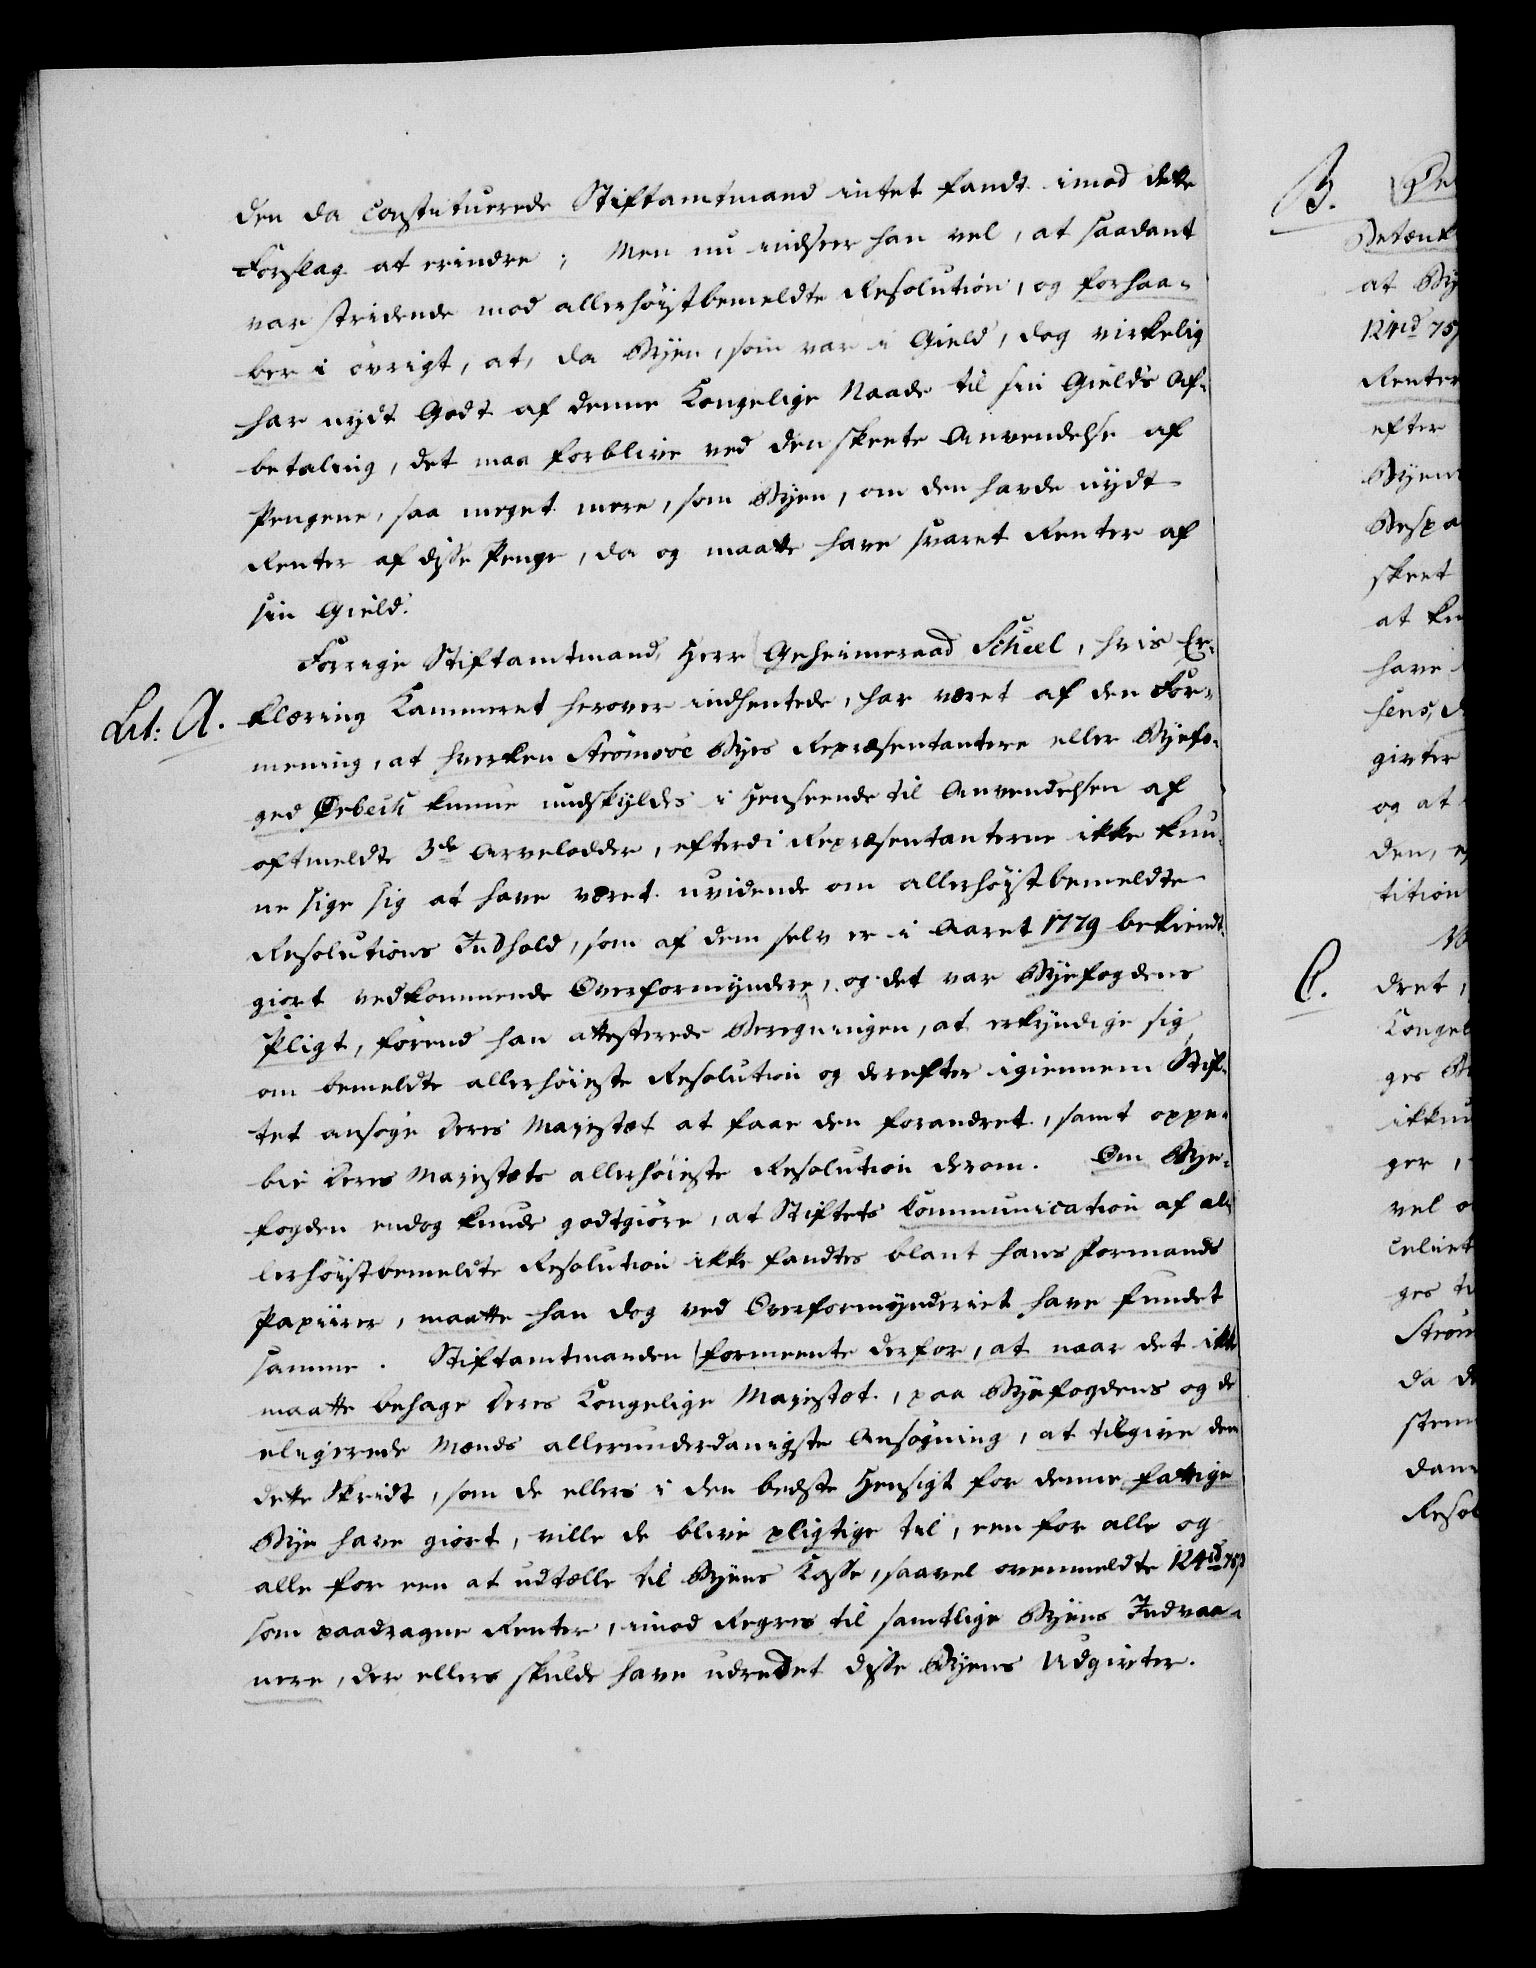 den da constituerede Stiftamtmand intet fandt imod dette
Forslag at erindre; Men nu indseer han vel, at saadant
var stridende mod allerhöistbemeldte Resolution, og forhaa-
ber i övrigt, at, da Byen, som var i Gield, dog virkelig
har nydt Godt af denne Kongelige Naade til sin Gields Af-
betaling, det maa forblive ved den skeete Anvendelse af
Pengene, saa meget mere, som Byen, om den havde nydt
Renter af disse Penge, da og maatte have svaret Renter af
sin Gield.
Forrige Stiftamtmand Herr Geheimeraad Scheel, hvis Er-
Lit: A. klæring Kammeret herover indhentede, har været af den For-
mening, at hverken Strömsöe Byes Repræsentantere eller Byefo-
ged Ørbech kunne undskyldes i Henseende til Anvendelsen af
oftmeldte 3de Arvelodder, efterdi Repræsentanterne ikke kun-
ne sige sig at have været uvidende om allerhöistbemeldte
Resolutions Indhold, som af dem selv er i Aaret 1779 bekiendt-
giort vedkommende Overformyndere, og det var Byefogdens
Pligt, förend han attesterede Beregningen, at erkyndige sig
om bemeldte allerhöieste Resolution og derefter igiennem Stif-
tet ansöge Deres Majestæt at faae den forandret, samt oppe-
bie Deres Majestæts allerhöieste Resolution derom. Om Bye-
fogden endog kunde godtgiöre, at Stiftets Communication af al-
lerhöistbemeldte Resolution ikke fandtes blant hans Formands
Papiirer, maatte han dog ved Overformynderiet have fundet
samme. Stiftamtmanden formeente derfor, at naar det ikke
maatte behage Deres Kongelige Majestæt, paa Byefogdens og de
eligerede Mænds allerunderdanigste Ansögning, at tilgive dem
dette Skridt, som de ellers i den bedste Hensigt for denne fattige
Bye have giort, ville de blive pligtige til, een for alle og
alle for een at udtælle til Byens Casse, saavel ovenmeldte 124rd 75s
som paadragne Renter, imod Regres til samtlige Byens Indvaa-
nere, der ellers skulde have udredet disse Byens Udgivter.
B.
Betænk
at By
124rd 75
Renter
efter
Byens
Bespa
skeet
at ku
have
giver
og at
den,
tition
C. dret,
Kongel
ges
ger,
vel
ges
Ström
da
stem
dann
Resol